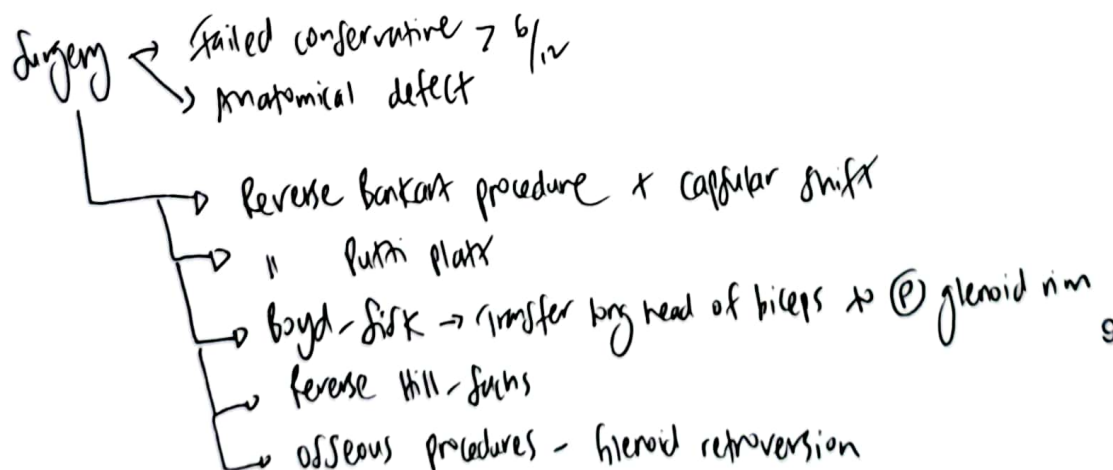 Surgery → Failed conservative > 6/12
→ Anatomical defect
→ Reverse Bankart procedure + capsular shift
→ " Putti platt
→ Boyd-Sisk → transfer long head of biceps to Ⓟ glenoid rim
→ Reverse Hill-Sachs
→ Osseous procedures - Glenoid retroversion